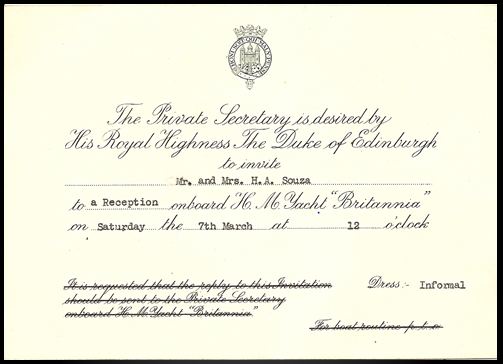 HONI SOIT QUI MAL Y PENSE
The Private Secretary is desired by
His Royal Highness The Duke of Edinburgh
to invite
Mr. and Mrs. H.A. Souza
to a Reception onboard H. M. Yacht "Britannia"
on Saturday the 7th March at 12 o'clock
It is requested that the reply to this Invitation
should be sent to the Private Secretary
onboard H. M. Yacht "Britannia"
Dress:- Informal
For boat routine p.t.o